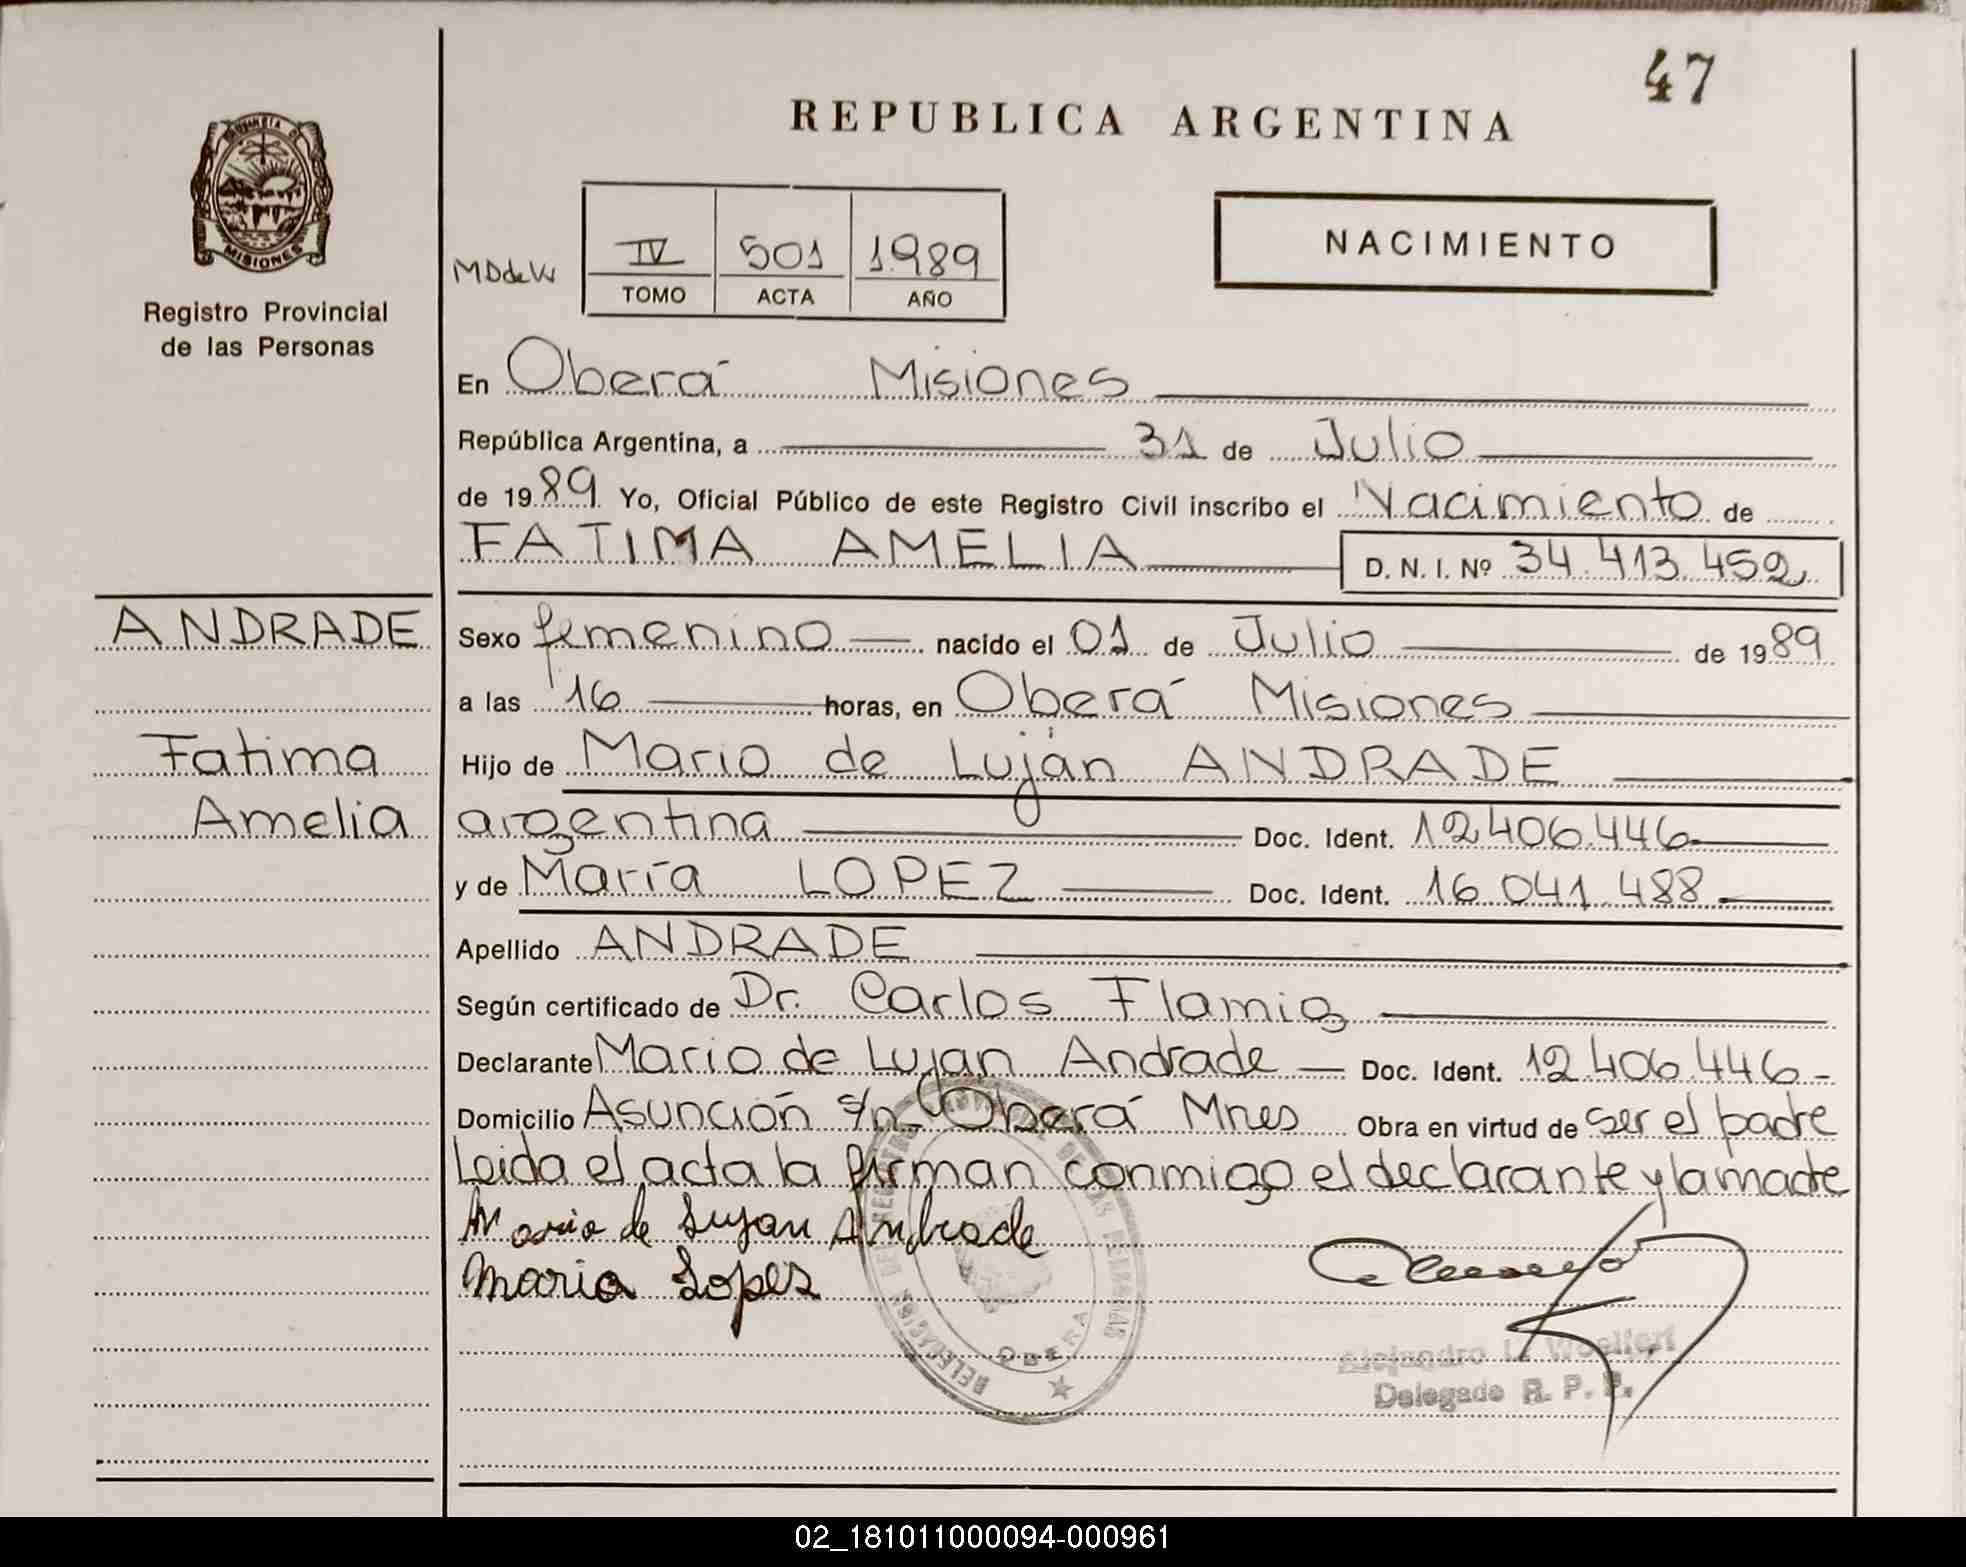 47
REPUBLICA ARGENTINA
PROVINCIA DE
MISIONES
Registro Provincial
de las Personas
IV 501 1989
TOMO ACTA AÑO
NACIMIENTO
En Oberá Misiones
República Argentina, a 31 de Julio
de 1989 Yo, Oficial Público de este Registro Civil inscribo el Nacimiento de
FATIMA AMELIA D. N. I. Nº 34.413.452
ANDRADE
Fatima
Amelia
Sexo femenino nacido el 01 de Julio de 1989
a las 16 horas, en Oberá Misiones
Hijo de Mario de Luján ANDRADE
argentina Doc. Ident. 12.406.446
y de María LOPEZ Doc. Ident. 16.041.488
Apellido ANDRADE
Según certificado de Dr. Carlos Flamig
Declarante Mario de Lujan Andrade Doc. Ident. 12.406.446
Domicilio Asunción s/n Oberá Mnes Obra en virtud de ser el padre
Leida el acta la firman conmigo el declarante y la madre
Mario de Lujan Andrade
Maria Lopez
DELEGACION OBERA
Alejandro L.
Delegado R. P. P.
02_181011000094-000961